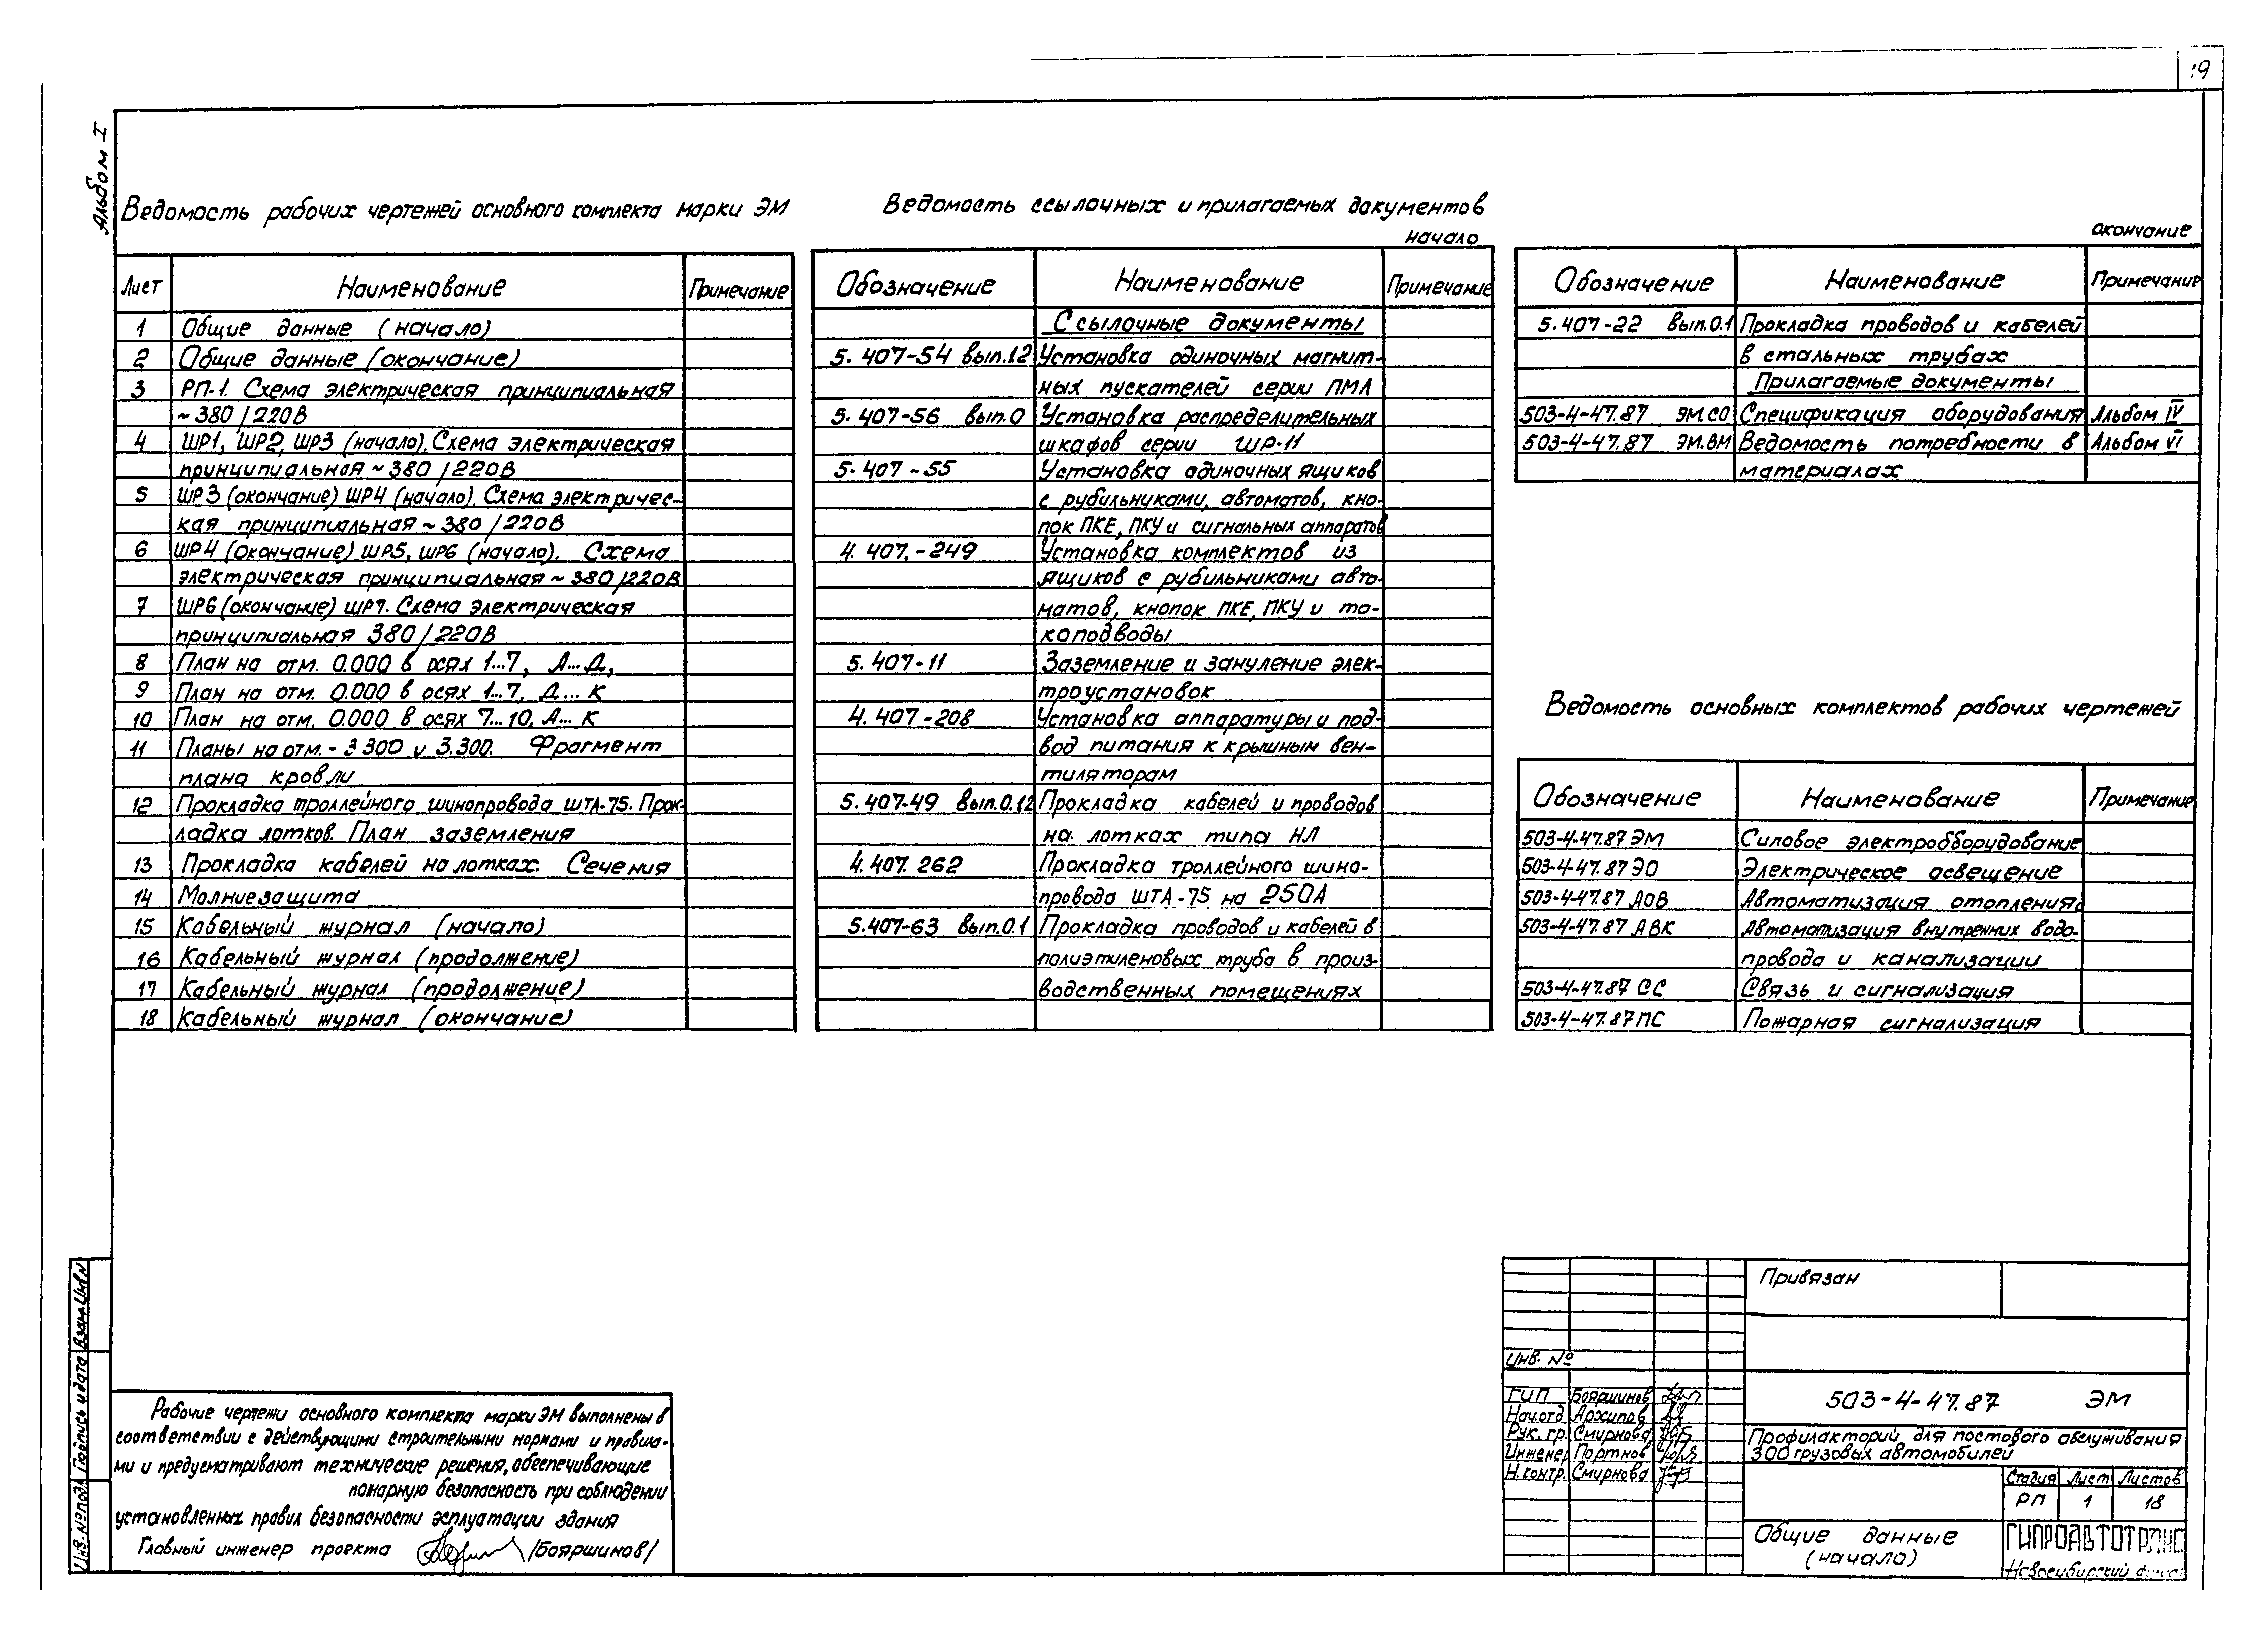 19
Альбом I
Ведомость рабочих чертежей основного комплекта марки ЭМ
Лист Наименование Примечание
1 Общие данные (начало)
2 Общие данные (окончание)
3 РП-1. Схема электрическая принципиальная
~380/220В
4 ШР1, ШР2, ШР3 (начало). Схема электрическая
принципиальная ~380/220В
5 ШР3 (окончание) ШР4 (начало). Схема электричес-
кая принципиальная ~380/220В
6 ШР4 (окончание) ШР5, ШР6 (начало). Схема
электрическая принципиальная ~380/220В
7 ШР6 (окончание) ШР7. Схема электрическая
принципиальная 380/220В
8 План на отм. 0.000 в осях 1...7, А...Д,
9 План на отм. 0.000 в осях 1...7, Д...К
10 План на отм. 0.000 в осях 7...10, А...К
11 Планы на отм. -3 300 и 3.300. Фрагмент
плана кровли
12 Прокладка троллейного шинопровода ШТА-75. Прок-
ладка лотков. План заземления
13 Прокладка кабелей на лотках. Сечения
14 Молниезащита
15 Кабельный журнал (начало)
16 Кабельный журнал (продолжение)
17 Кабельный журнал (продолжение)
18 Кабельный журнал (окончание)
Ведомость ссылочных и прилагаемых документов
начало
Обозначение Наименование Примечание
Ссылочные документы
5.407-54 вып.1.2 Установка одиночных магнит-
ных пускателей серии ПМЛ
5.407-56 вып.0 Установка распределительных
шкафов серии ШР-11
5.407-55 Установка одиночных ящиков
с рубильниками, автоматов, кно-
пок ПКЕ, ПКУ и сигнальных аппаратов
4.407.-249 Установка комплектов из
ящиков с рубильниками авто-
матов, кнопок ПКЕ, ПКУ и то-
каподводы
5.407-11 Заземление и зануление элек-
троустановок
4.407-208 Установка аппаратуры и под-
вод питания к крышным вен-
тиляторам
5.407-49 вып.0.12 Прокладка кабелей и проводов
на лотках типа НЛ
4.407.262 Прокладка троллейного шино-
провода ШТА-75 на 250А
5.407-63 вып.0.1 Прокладка проводов и кабелей в
полиэтиленовых труба в произ-
водственных помещениях
окончание
Обозначение Наименование Примечание
5.407-22 вып.0.1 Прокладка проводов и кабелей
в стальных трубах
Прилагаемые документы
503-4-47.87 ЭМ.СО Спецификация оборудования Альбом IV
503-4-47.87 ЭМ.ВМ Ведомость потребности в Альбом VI
материалах
Ведомость основных комплектов рабочих чертежей
Обозначение Наименование Примечание
503-4-47.87 ЭМ Силовое электробборудование
503-4-47.87 ЭО Электрическое освещение
503-4-47.87 АОВ Автоматизация отопления
503-4-47.87 АВК Автоматизация внутренних водо-
провода и канализации
503-4-47.87 СС Связь и сигнализация
503-4-47.87 ПС Пожарная сигнализация
Инв. № подл. Подпись и дата Взам. Инв.N
Рабочие чертежи основного комплекта марки ЭМ выполнены в
соответствии с действующими строительными нормами и правила-
ми и предусматривают технические решения, обеспечивающие
пожарную безопасность при соблюдении
установленных правил безопасности эсплуатации здания
Главный инженер проекта /Бояршинов/
Привязан
Инв. №
ГИП Бояршинов
Нач.отд Архипов
Рук. гр. Смирнова
Инженер Портнов
Н.контр. Смирнова
503-4-47.87 ЭМ
Профилакторий для постового обслуживания
300 грузовых автомобилей
Стадия Лист Листов
РП 1 18
Общие данные
(начало)
ГИПРОАВТОТРАНС
Новосибирский филиал